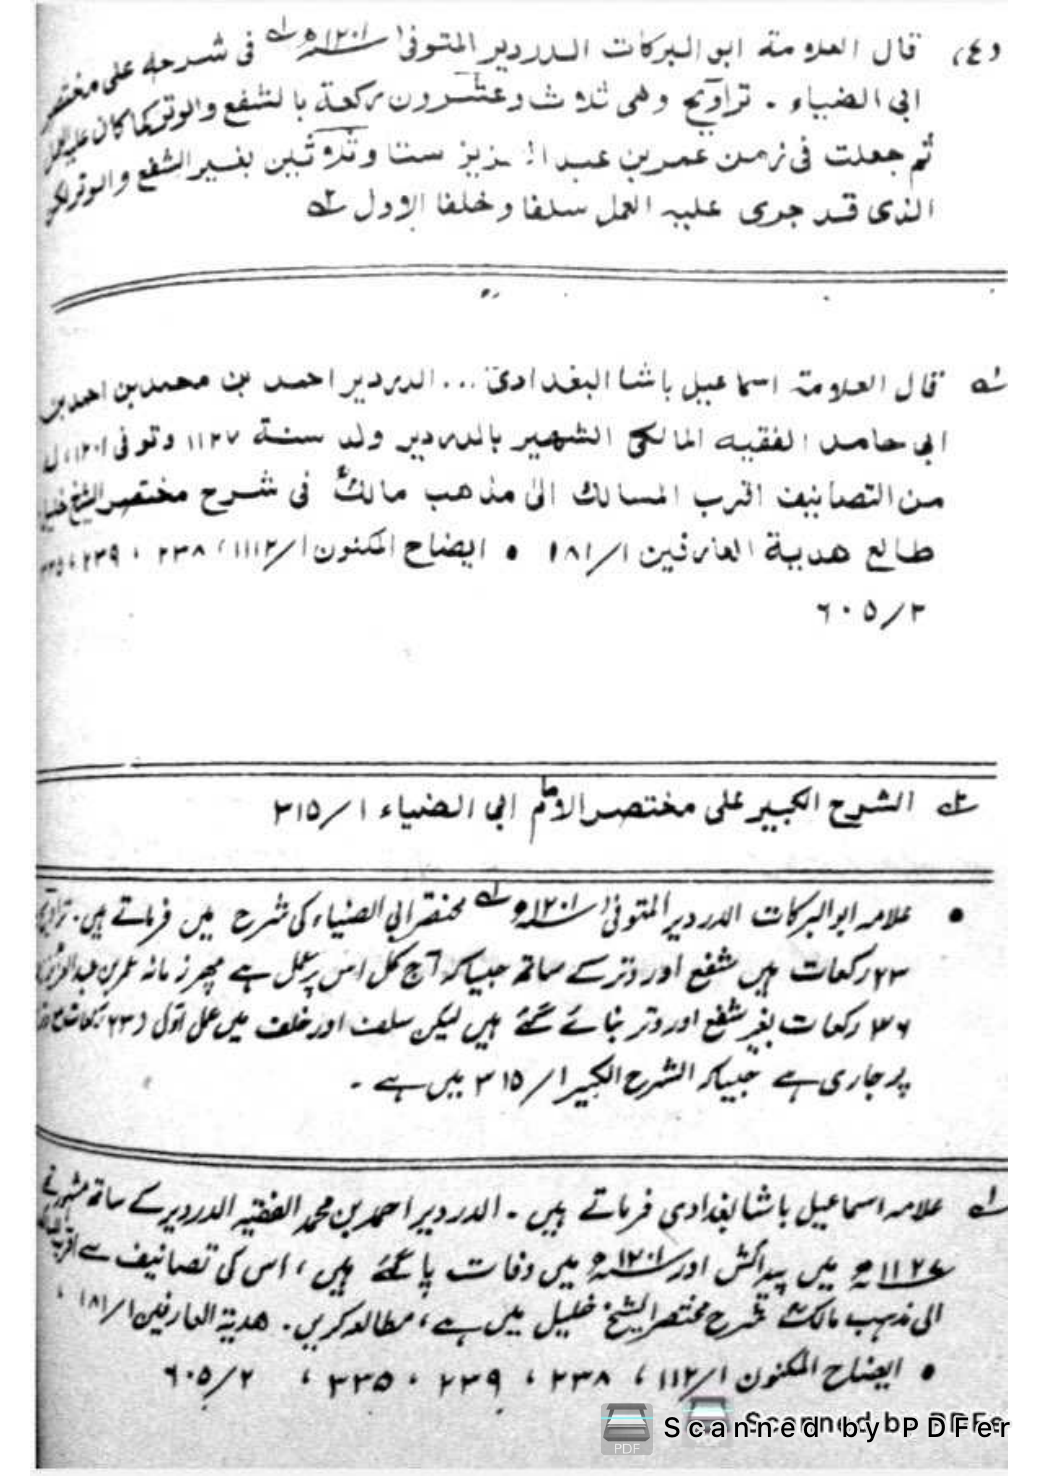 (٤) قال العلامة ابو البركات الدردير المتوفى ١٢٠١ھ لہ فى شرحه على مختصر
ابى الضياء . تراويح وهى ثلاث وعشرون ركعة بالشفع والوتر كما كان عليه العمل
ثم جعلت فى زمن عمر بن عبد العزيز ستا وثلاثين بغير الشفع والوتر لكن
الذى قد جرى عليه العمل سلفا وخلفا الاول ٢ہ
لہ قال العلامة اسماعيل باشا البغدادى ... الدردير احمد بن محمد بن احمد بن
ابى حامد الفقيه المالكى الشهير بالدردير ولد سنة ١١٢٧ وتوفى ١٢٠١، له
من التصانيف اقرب المسالك الى مذهب مالكؒ فى شرح مختصر الشيخ خليل
طالع هدية العارفين ١/١٨١ • ايضاح المكنون ١/١١١٢، ٢٣٨، ٢٣٩، ٣٣٥
٢/٦٠٥
٢ہ الشرح الكبير على مختصر الامام ابى الضياء ١/٣١٥
• علامہ ابوالبرکات الدردیر المتوفی ١٢٠١ھ لہ مختصر ابی الضیاء کی شرح میں فرماتے ہیں۔ تراویح
٢٣ رکعات ہیں شفع اور وتر کے ساتھ جیسا کہ آج کل اس پر عمل ہے پھر زمانہ عمر بن عبدالعزیز
٣٦ رکعات بغیر شفع اور وتر بنائے گئے ہیں لیکن سلف اور خلف میں عمل اول (٢٣ رکعات
پر جاری ہے جیسا کہ الشرح الکبیر ١/٣١٥ میں ہے ۔
لہ علامہ اسماعیل باشا بغدادی فرماتے ہیں ۔ الدردیر احمد بن محمد الفقیہ الدردیر کے ساتھ مشہور نے
١١٢٧ھ میں پیدائش اور ١٢٠١ھ میں وفات پا گئے ہیں، اس کی تصانیف سے اقرب المسالک
الی مذہب مالکؒ شرح مختصر الشیخ خلیل میں ہے، مطالعہ کریں۔ ھدیۃ العارفین ١/١٨١،
• ایضاح المکنون ١/١١٢، ٢٣٨، ٢٣٩، ٣٣٥، ٢/٦٠٥
Scanned by PDFer